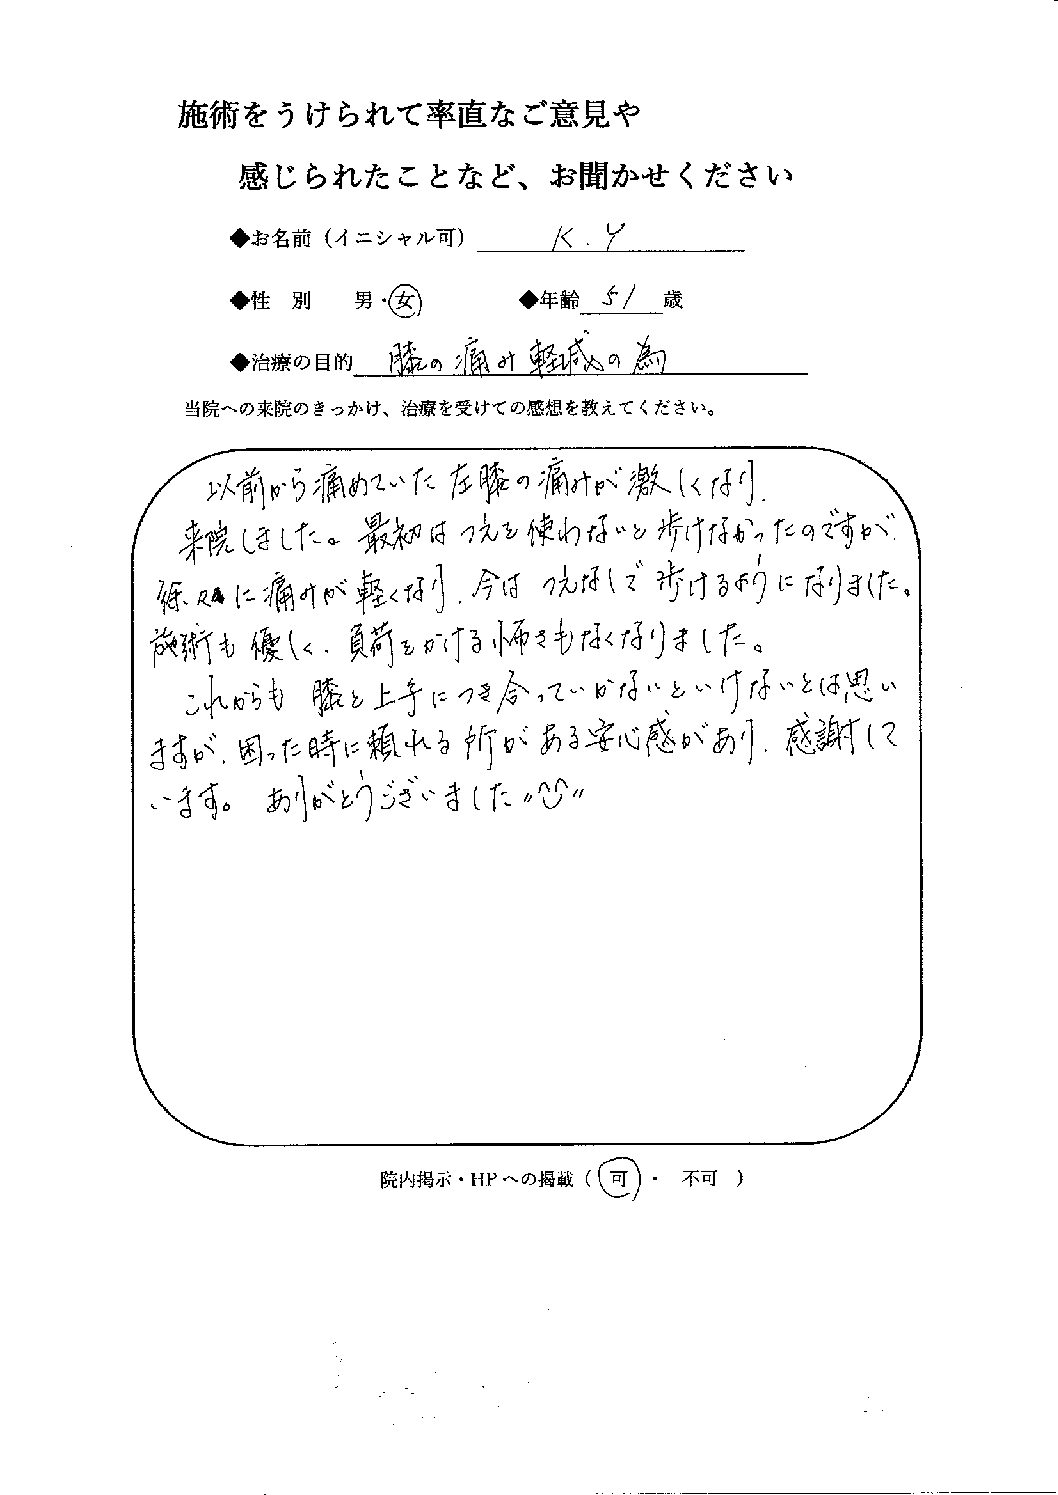 施術をうけられて率直なご意見や
感じられたことなど、お聞かせください
◆お名前（イニシャル可） K.Y
◆性 別 男・女 ◆年齢 51 歳
◆治療の目的 膝の痛み軽減の為
当院への来院のきっかけ、治療を受けての感想を教えてください。
以前から痛めていた左膝の痛みが激しくなり、
来院しました。最初はつえを使わないと歩けなかったのですが、
徐々に痛みが軽くなり、今はつえなしで歩けるようになりました。
施術も優しく、負荷をかける怖さもなくなりました。
これからも膝と上手につき合っていかないといけないとは思い
ますが、困った時に頼れる所がある安心感があり、感謝して
います。ありがとうございました〃
院内掲示・HPへの掲載（ 可 ・ 不可 ）